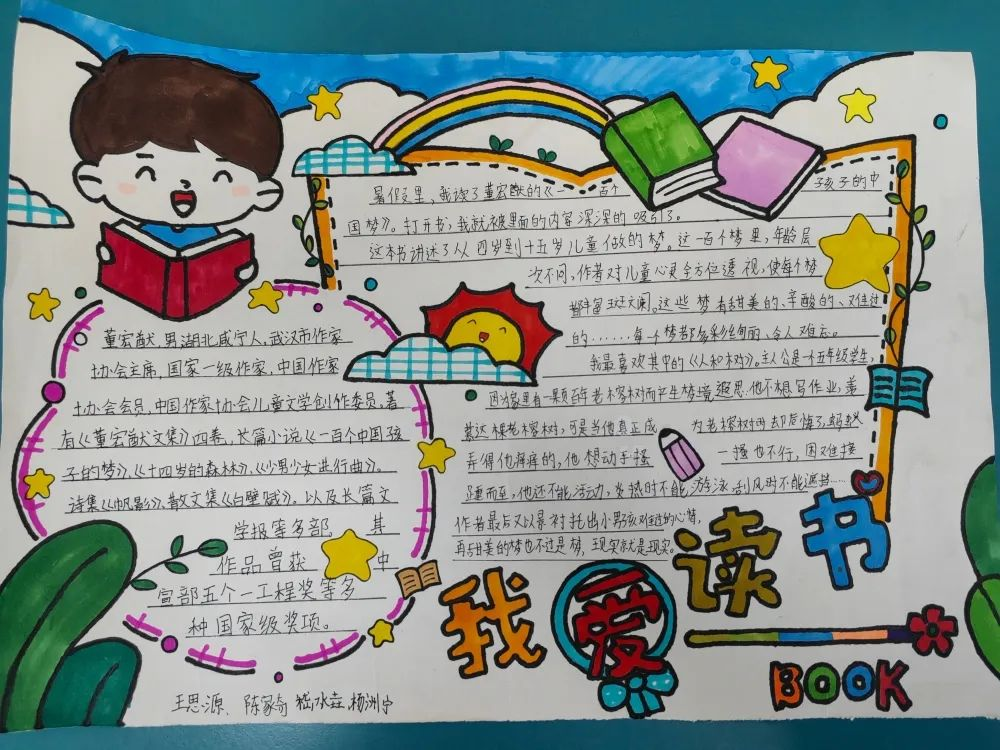 董宏猷,男,湖北咸宁人,武汉市作家
协会主席,国家一级作家,中国作家
协会会员,中国作家协会儿童文学创作委员,著
有《董宏猷文集》四卷,长篇小说《一百个中国孩
子的梦》、《十四岁的森林》、《少男少女进行曲》。
诗集《帆影》、散文集《白壁赋》,以及长篇文
学报等多部 其
作品曾获 中
宣部五个一工程奖等多
种国家级奖项。
王思源、陈家奇
暑假里,我读了董宏猷的《一 百个 孩子的中
国梦》。打开书,我就被里面的内容深深的吸引了。
这本书讲述了从四岁到十五岁儿童做的梦。这一百个梦里,年龄层
次不同,作者对儿童心灵全方位透视,使每个梦
都丰富斑斓。这些梦有甜美的、辛酸的、难过
的.......每一个梦都多彩绚丽、令人难忘。
我最喜欢其中的《人和树》。主人公是一个五年级学生,
因为家里有一颗百年老榕树而产生梦境遐思。他不想写作业,羡
慕这棵老榕树,可是当他真正成 为老榕树时却后悔了,蚂蚁
弄得他痒痒的,他想动手搔 一搔也不行,困难接
踵而至,他还不能活动,炎热时不能游泳,刮风时不能遮挡......
作者最后又以景衬托出小男孩难过的心情,
再甜美的梦也不过是梦,现实就是现实。
我爱读书
BOOK